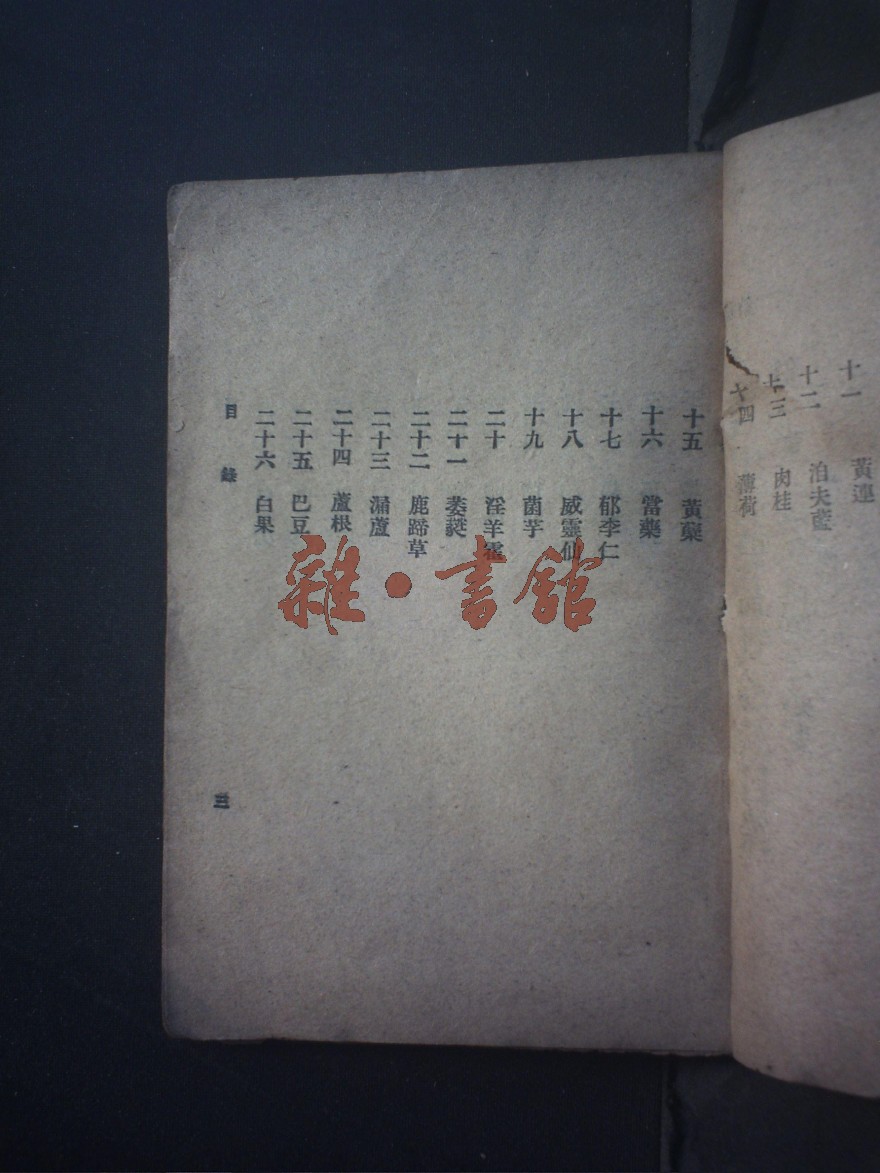 十一 黃連
十二 泊夫藍
十三 肉桂
十四 薄荷
十五 黃蘗
十六 當藥
十七 郁李仁
十八 威靈仙
十九 茵芋
二十 淫羊霍
二十一 萎蕤
二十二 鹿蹄草
二十三 漏蘆
二十四 蘆根
二十五 巴豆
二十六 白果
目錄
三
雜·書館